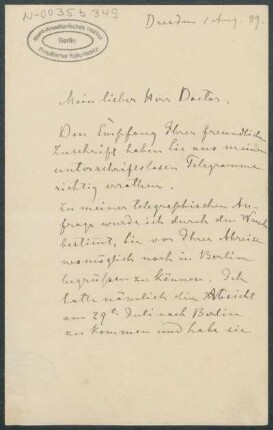 N-0035 b 349
Ibero-Amerikanisches Institut
Berlin
Preußischer Kulturbesitz
Dresden 1 Aug. 89.
Mein lieber Herr Doctor.
Den Empfang Ihrer freundlichen
Zuschrift haben Sie aus meinem
unterschriftslosen Telegramme
richtig errathen.
Zu meiner telegraphischen An-
frage wurde ich durch den Wunsch
bestimmt, Sie vor Ihrer Abreise
womöglich noch in Berlin
begrüßen zu können. Ich
hatte nämlich die Absicht
am 29ten Juli nach Berlin
zu kommen und habe sie